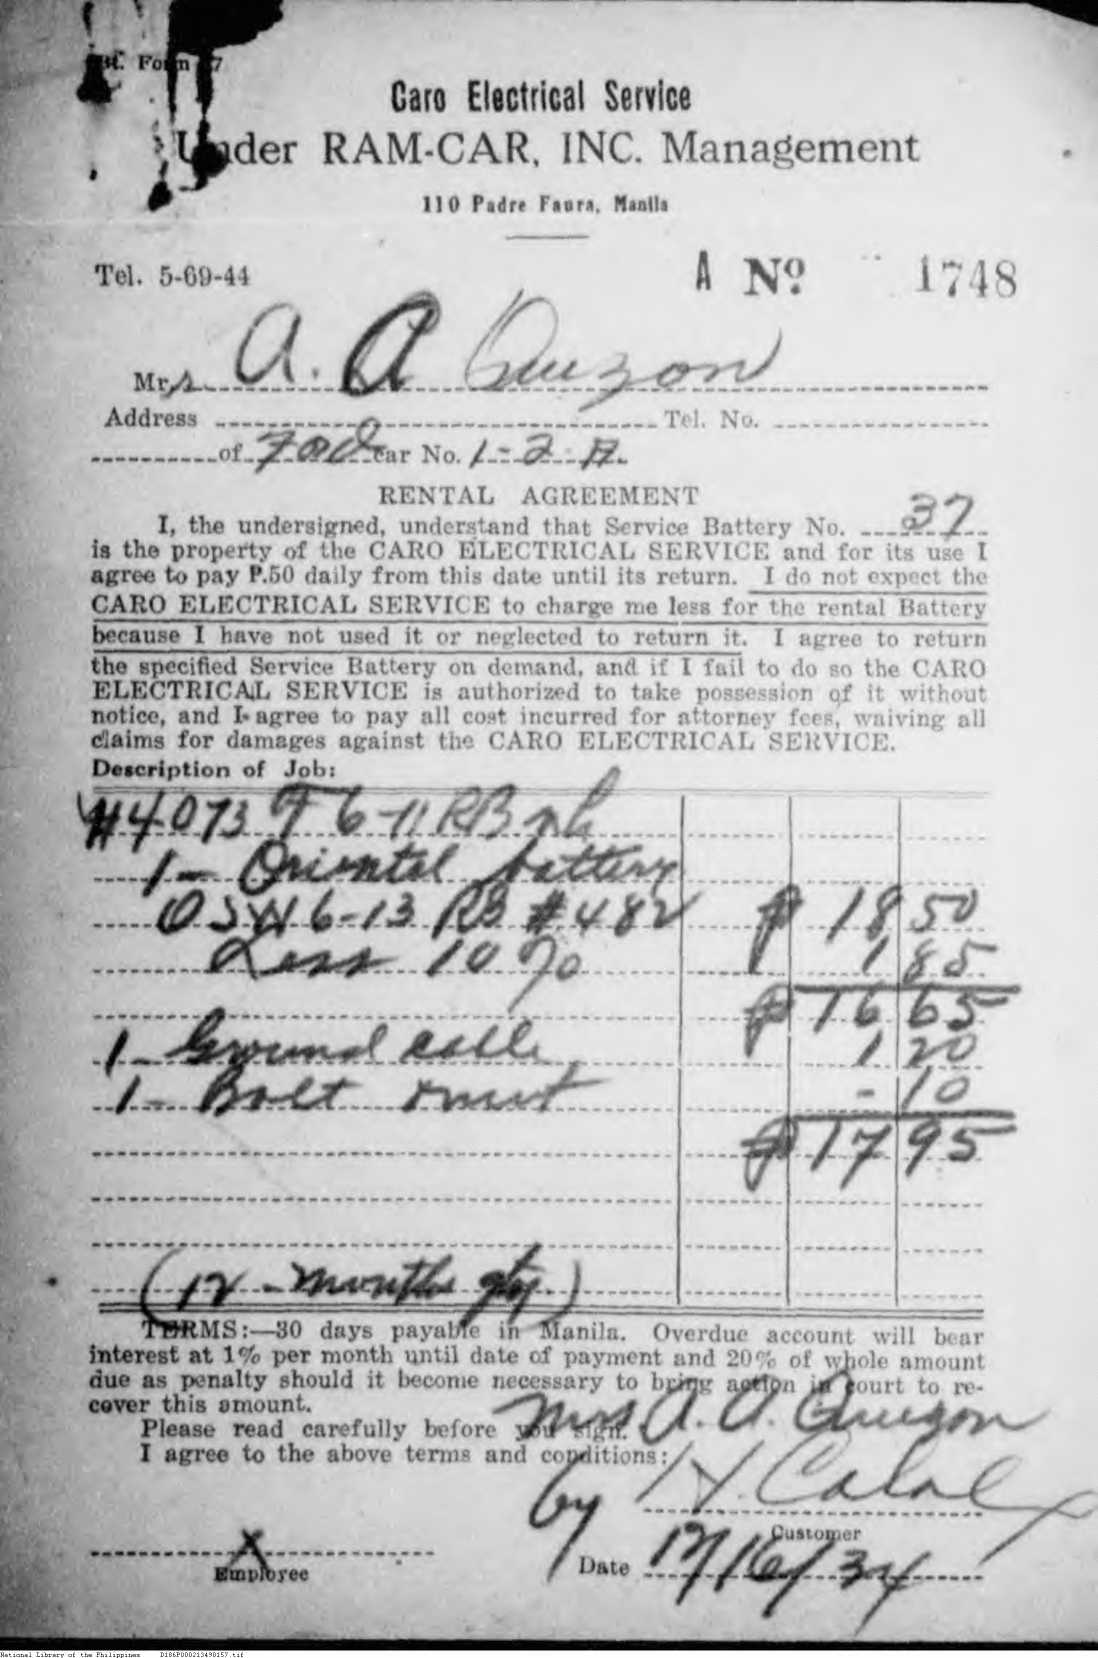 Caro Electrical Service
Under RAM-CAR, INC. Management
110 Padre Faura, Manila
Tel. 5-69-44
A No 1748
Mrs. A. A.
Address Tel. No.
of Ford Car No. 1-2-A
RENTAL AGREEMENT
I, the undersigned, understand that Service Battery No. 37
is the property of the CARO ELECTRICAL SERVICE and for its use I
agree to pay P.50 daily from this date until its return. I do not expect the
CARO ELECTRICAL SERVICE to charge me less for the rental Battery
because I have not used it or neglected to return it. I agree to return
the specified Service Battery on demand, and if I fail to do so the CARO
ELECTRICAL SERVICE is authorized to take possession of it without
notice, and I agree to pay all cost incurred for attorney fees, waiving all
claims for damages against the CARO ELECTRICAL SERVICE.
Description of Job:
#4073 T 6-11 RB
1- Oriental battery
OSW 6-13 RB #482 ₱ 18 50
Less 10% 1 85
₱ 16 65
1- Ground cable 1 20
1- Bolt & nut - 10
₱ 17 95
(12 - months gty.)
TERMS:—30 days payable in Manila. Overdue account will bear
interest at 1% per month until date of payment and 20% of whole amount
due as penalty should it become necessary to bring action in court to re-
cover this amount.
Please read carefully before you sign.
Mrs. A. A.
I agree to the above terms and conditions:
by
Customer
Employee
Date 12/16/34
National Library of the Philippines D186P000213498157.tif